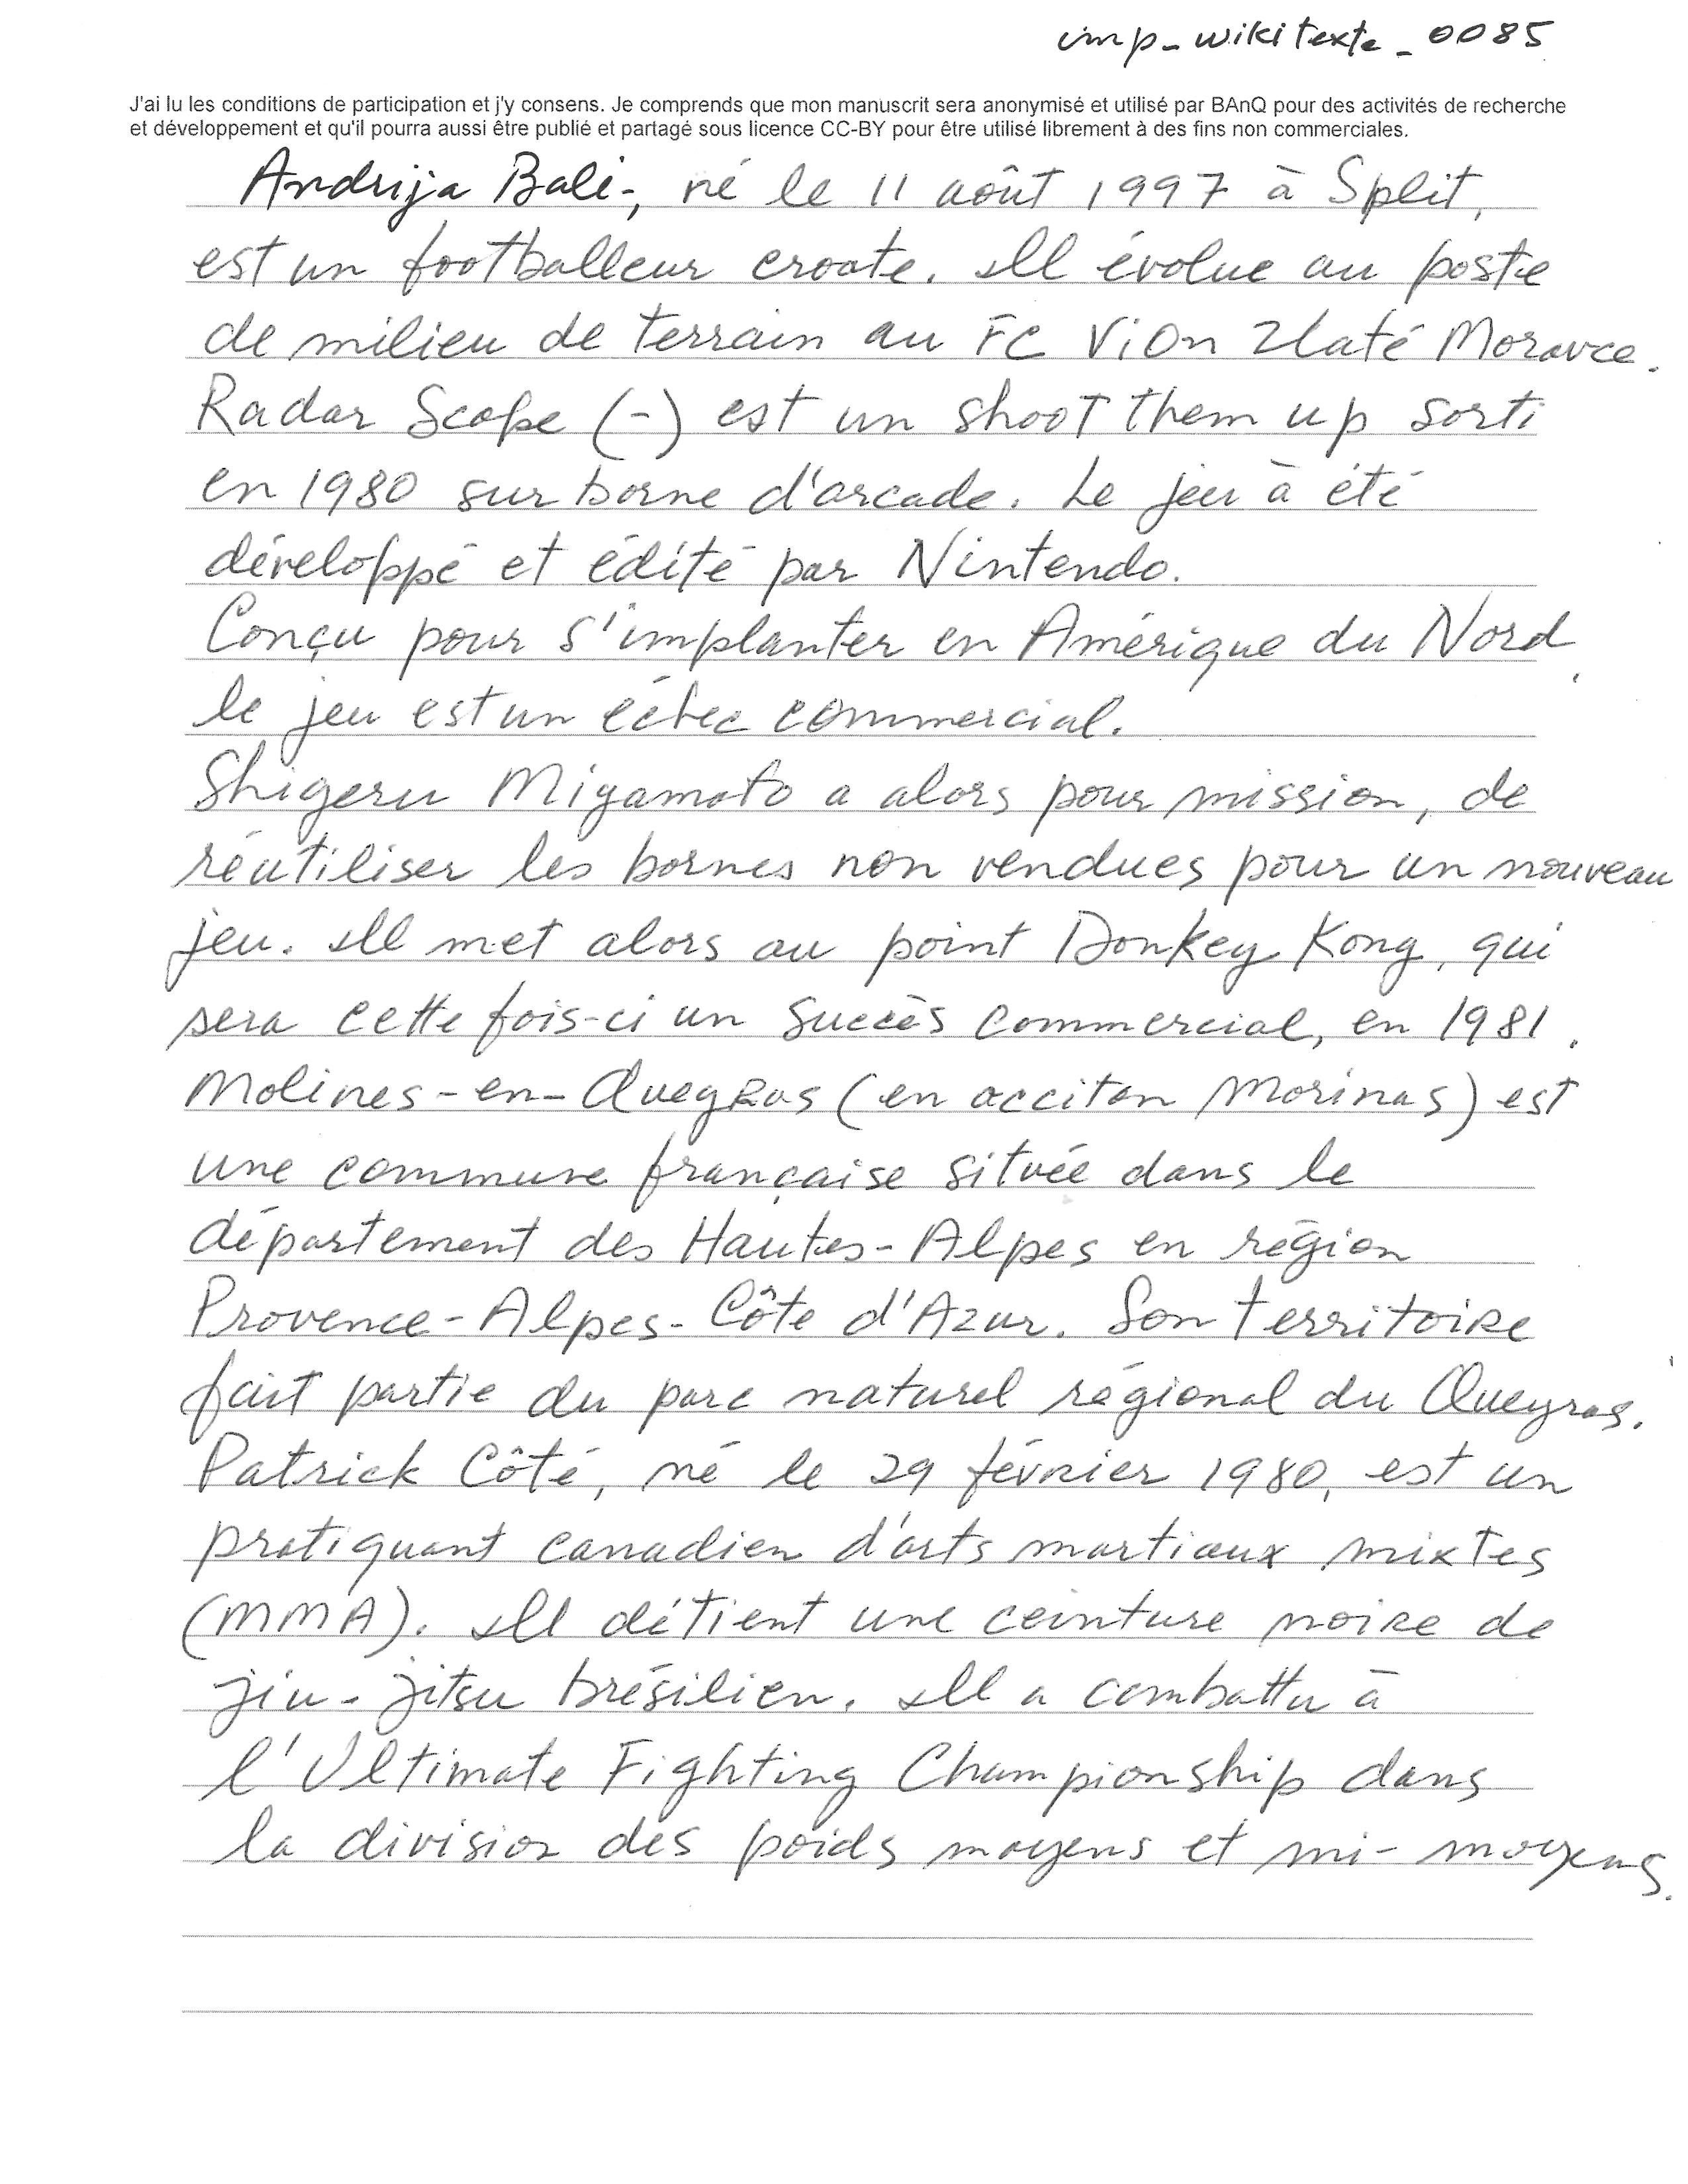 imp_wikitexte_0085
J'ai lu les conditions de participation et j'y consens. Je comprends que mon manuscrit sera anonymisé et utilisé par BAnQ pour des activités de recherche
et développement et qu'il pourra aussi être publié et partagé sous licence CC-BY pour être utilisé librement à des fins non commerciales.
Andrija Bali-, né le 11 août 1997 à Split,
est un footballeur croate. Il évolue au poste
de milieu de terrain au FC ViOn Zlaté Moravce.
Radar Scope (-) est un shoot them up sorti
en 1980 sur borne d'arcade. Le jeu à été
développé et édité par Nintendo.
Conçu pour s'implanter en Amérique du Nord,
le jeu est un échec commercial.
Shigeru Miyamoto a alors pour mission, de
réutiliser les bornes non vendues pour un nouveau
jeu. Il met alors au point Donkey Kong, qui
sera cette fois-ci un succès commercial, en 1981.
Molines-en-Queyras (en occitan Morinas) est
une commune française située dans le
département des Hautes-Alpes en région
Provence-Alpes-Côte d'Azur. Son territoire
fait partie du parc naturel régional du Queyras.
Patrick Côté, né le 29 février 1980, est un
pratiquant canadien d'arts martiaux mixtes
(MMA). Il détient une ceinture noire de
jiu-jitsu brésilien. Il a combattu à
l'Ultimate Fighting Championship dans
la division des poids moyens et mi-moyens.